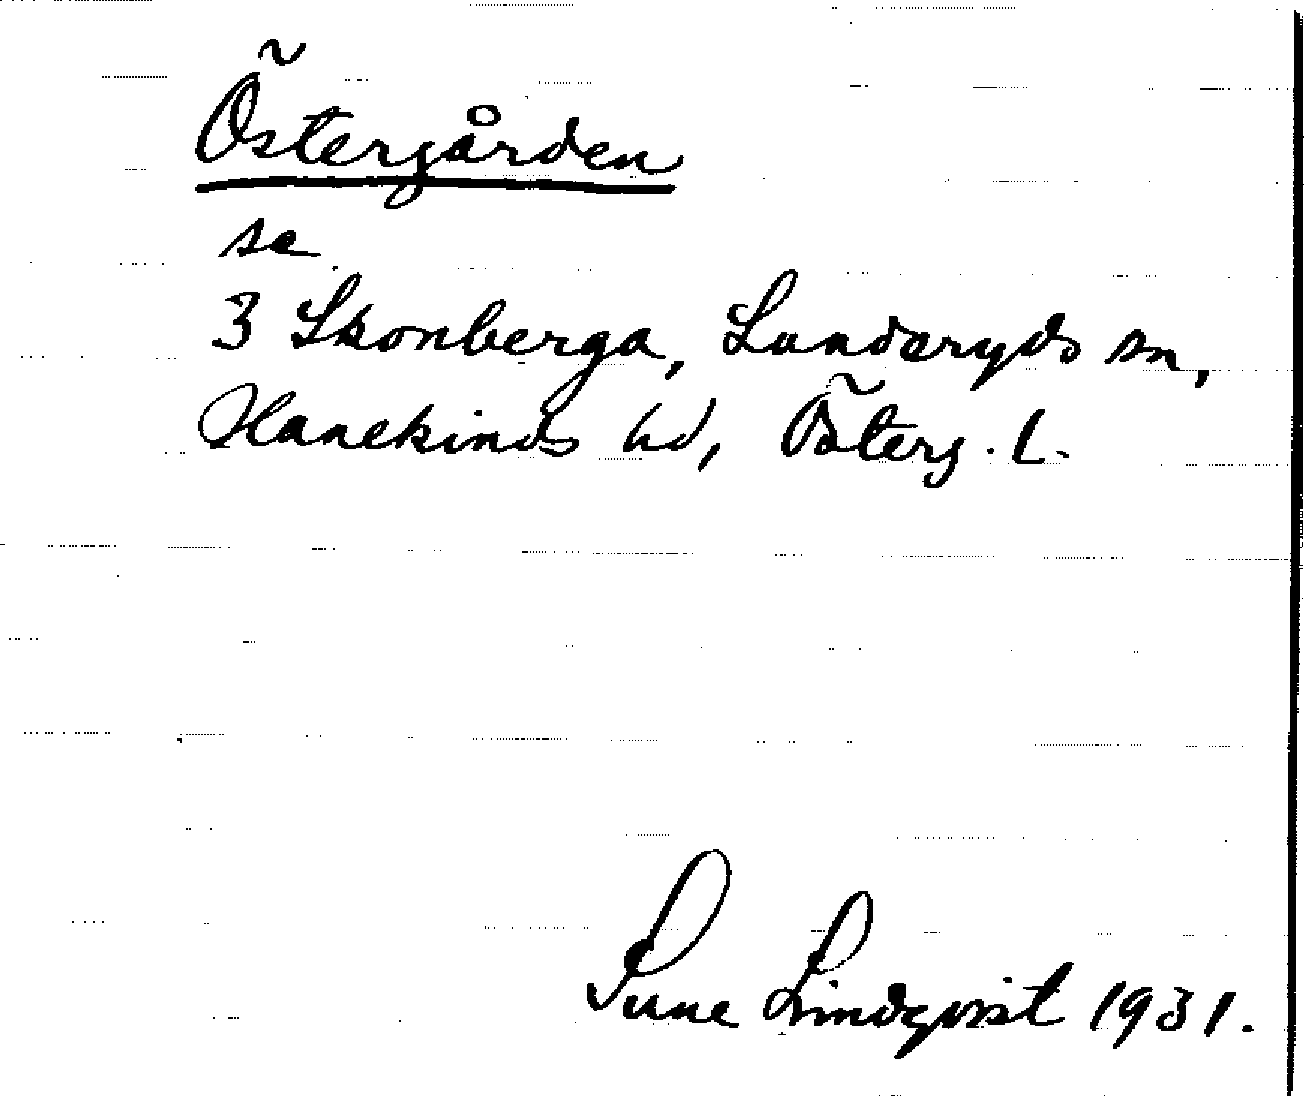 Östergården
se
3 Skonberga, Landeryds sn,
Hanekinds hd, Österg. l.
Sune Lindqvist 1931.